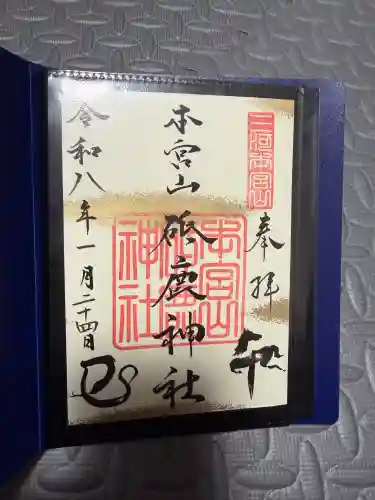 三河本宮山
奉拝
本宮山
砥鹿神社
本宮山
神社
令和八年一月二十四日